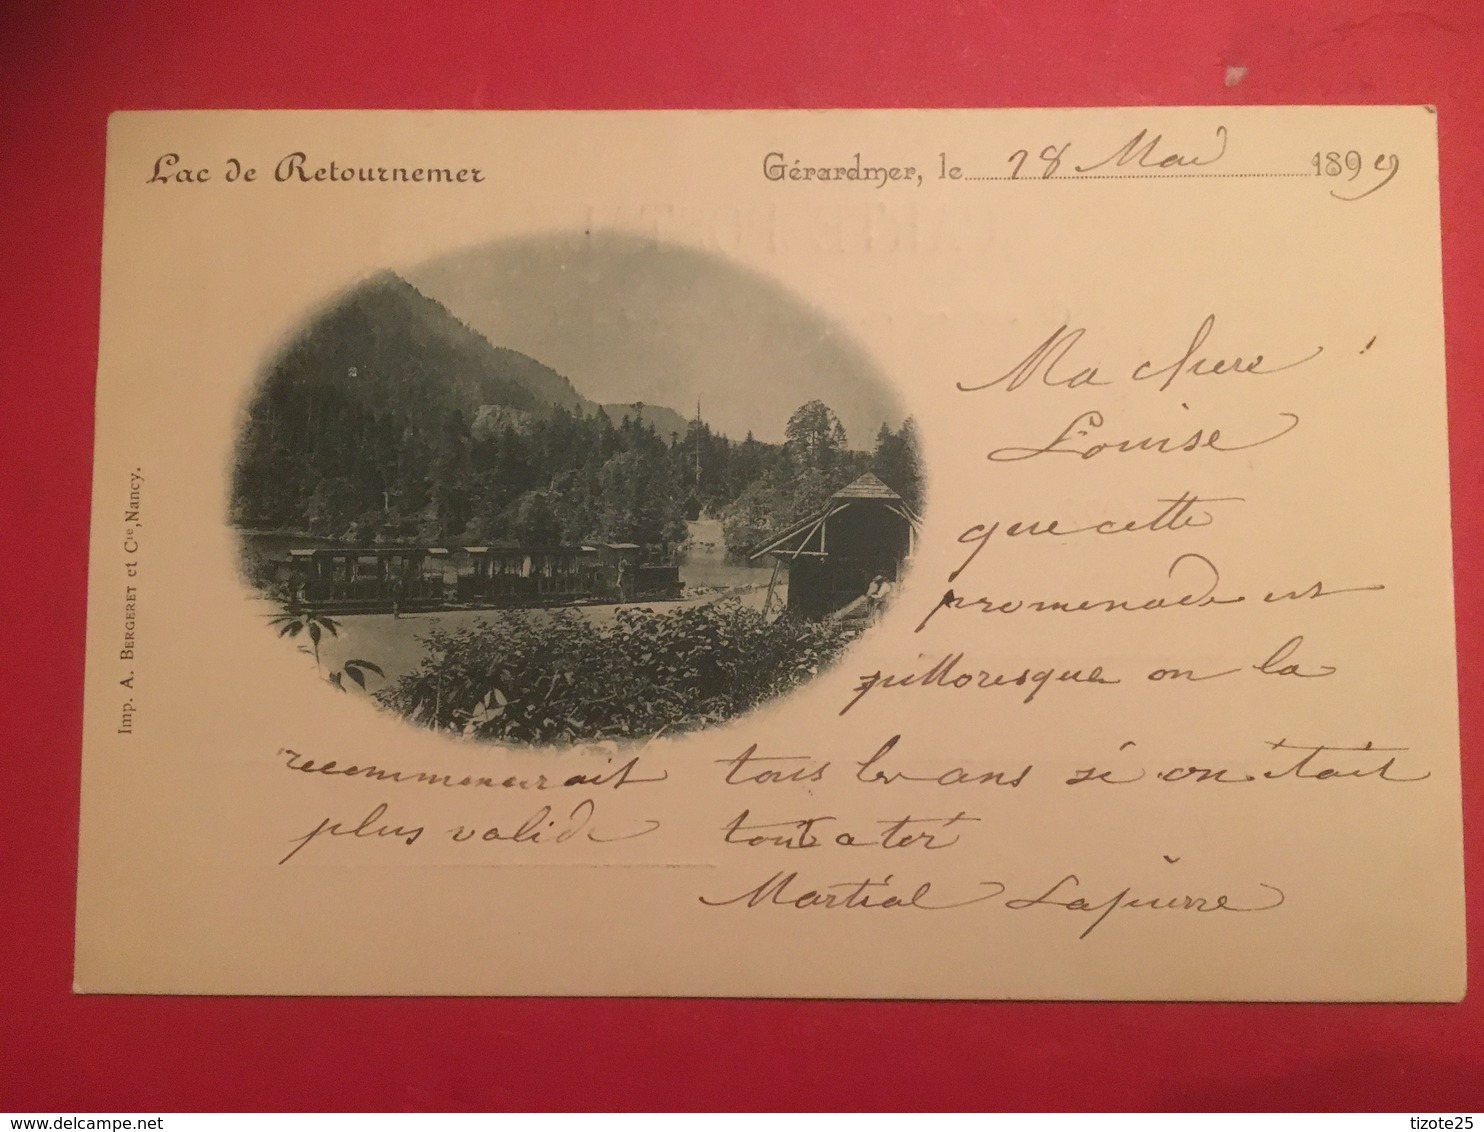 Lac de Retournemer
Gérardmer, le 28 Mai 1899
CARTE POSTALE
Ma chere
Louise !
que cette
promenade est
pittoresque on la
recommencerait tous les ans si on était
plus valide
Martial Lapierre
Imp. A. BERGERET et Cie, Nancy.
www.delcampe.net
tizote25